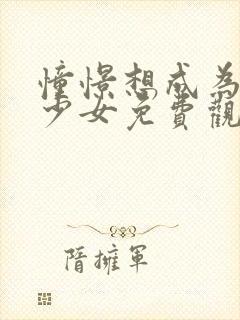 憧憬想成為
少女免費觀
隋擁軍